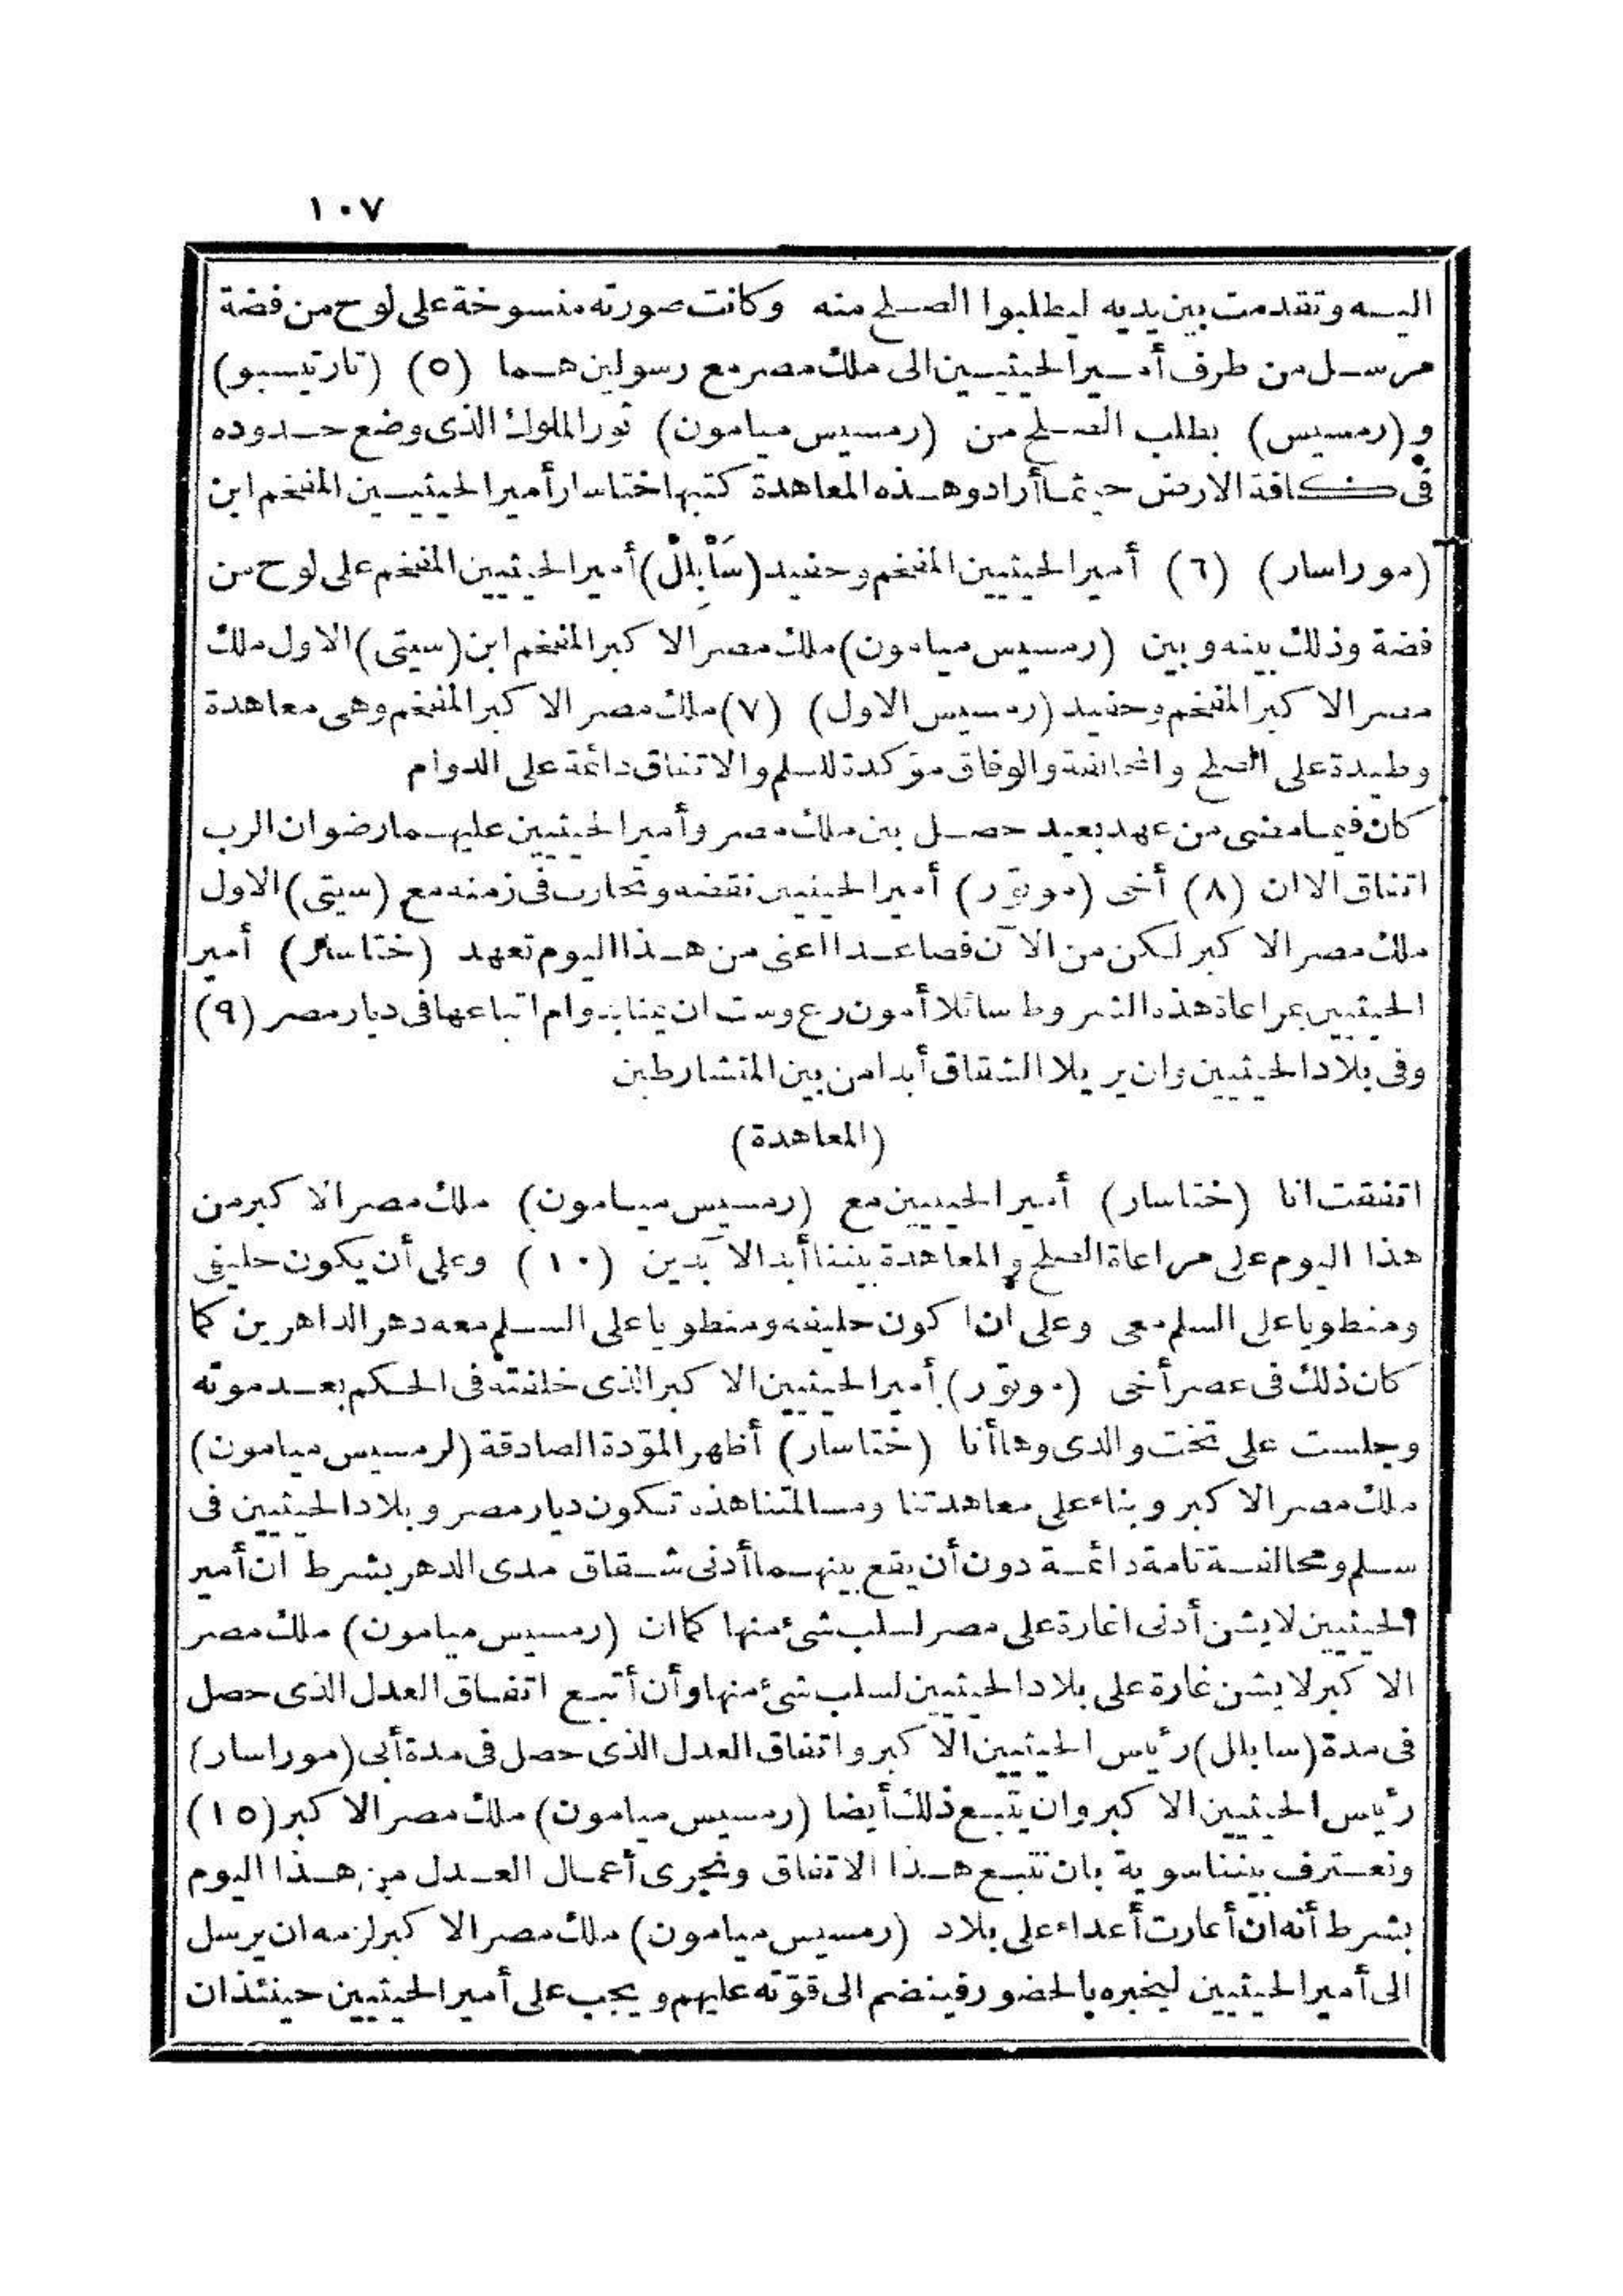 ١٠٧
اليه وتقدمت بين يديه ليطلبوا الصلح منه وكانت صورته منسوخة على لوح من فضة
مرسل من طرف أمير الحيثيين الى ملك مصر مع رسولين هما (٥) (تارتيسبو)
و(رمسيس) بطلب الصلح من (رمسيس ميامون) ثور الملوك الذى وضع حدوده
فى كافة الارض حيثما أراد وهذه المعاهدة كتبها اختاسار أمير الحيثيين المفخم ابن
(موراسار) (٦) أمير الحيثيين المفخم وحفيد (سَأْبِلِلْ) أمير الحيثيين المفخم على لوح من
فضة وذلك بينه وبين (رمسيس ميامون) ملك مصر الاكبر المفخم ابن (سيتى) الاول ملك
مصر الاكبر المفخم وحفيد (رمسيس الاول) (٧) ملك مصر الاكبر المفخم وهى معاهدة
وطيدة على الصلح والمحالفة والوفاق مؤكدة للسلم والاتفاق دائمة على الدوام
كان فيما مضى من عهد بعيد حصل بين ملك مصر وأمير الحيثيين عليهما رضوان الرب
اتفاق الا ان (٨) أخى (موتوّر) أمير الحيثيين نقضه وتحارب فى زمنه مع (سيتى) الاول
ملك مصر الاكبر لكن من الآن فصاعدا اعنى من هذا اليوم تعهد (ختاسار) أمير
الحيثيين بمراعاة هذه الشروط سائلا أمون رع وست ان يمنا بدوام اتباعها فى ديار مصر (٩)
وفى بلاد الحيثيين وان يزيلا الشقاق أبدا من بين المتشارطين
(المعاهدة)
اتفقت انا (ختاسار) أمير الحيثيين مع (رمسيس ميامون) ملك مصر الاكبر من
هذا اليوم على مراعاة الصلح والمعاهدة بيننا أبد الآبدين (١٠) وعلى أن يكون حليفى
ومنطويا على السلم معى وعلى ان اكون حليفه ومنطويا على السلم معه دهر الداهرين كما
كان ذلك فى عصر أخى (موتوّر) أمير الحيثيين الاكبر الذى خلفته فى الحكم بعد موته
وجلست على تخت والدى وها أنا (ختاسار) أظهر المودّة الصادقة (لرمسيس ميامون)
ملك مصر الاكبر وبناء على معاهدتنا ومسالمتنا هذه تكون ديار مصر وبلاد الحيثيين فى
سلم ومحالفة تامة دائمة دون أن يقع بينهما أدنى شقاق مدى الدهر بشرط ان أمير
الحيثيين لا يشن أدنى اغارة على مصر لسلب شئ منها كما ان (رمسيس ميامون) ملك مصر
الاكبر لا يشن غارة على بلاد الحيثيين لسلب شئ منها وأن أتبع اتفاق العدل الذى حصل
فى مدة (سابلل) رئيس الحيثيين الاكبر واتفاق العدل الذى حصل فى مدة أبى (موراسار)
رئيس الحيثيين الاكبر وان يتبع ذلك أيضا (رمسيس ميامون) ملك مصر الاكبر (١٥)
ونعترف بيننا سوية بان نتبع هذا الاتفاق ونجرى أعمال العدل من هذا اليوم
بشرط أنه ان أغارت أعداء على بلاد (رمسيس ميامون) ملك مصر الاكبر لزمه ان يرسل
الى أمير الحيثيين ليخبره بالحضور فينضم الى قوّته عليهم ويجب على أمير الحيثيين حينئذ ان